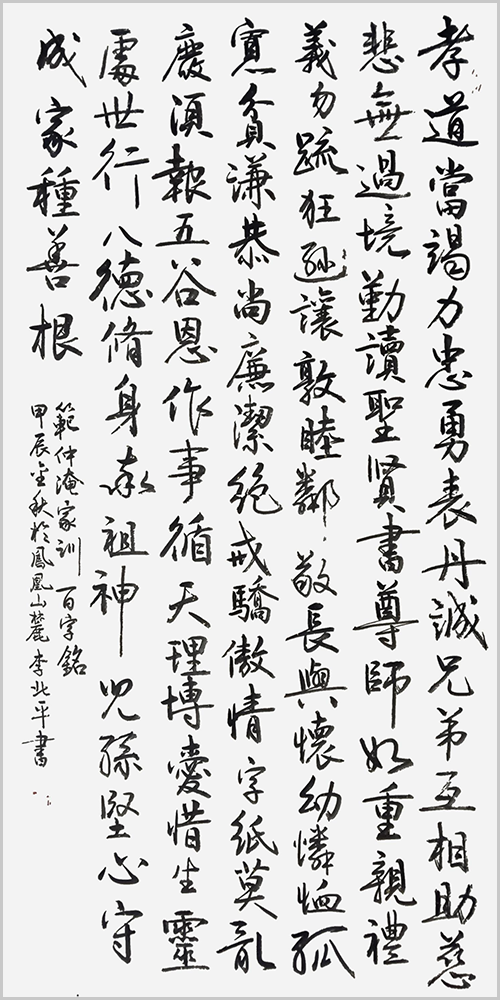 孝道當竭力忠勇表丹誠兄弟互相助慈
悲無過境勤讀聖賢書尊師如重親禮
義勿疏狂遜讓敦睦鄰敬長與懷幼憐恤孤
寡貧謙恭尚廉潔絕戒驕傲情字紙莫亂
廢須報五谷恩作事循天理博愛惜生靈
處世行八德脩身率祖神兒孫堅心守
成家種善根
範仲淹家訓百字銘
甲辰金秋於鳳凰山麓李北平書